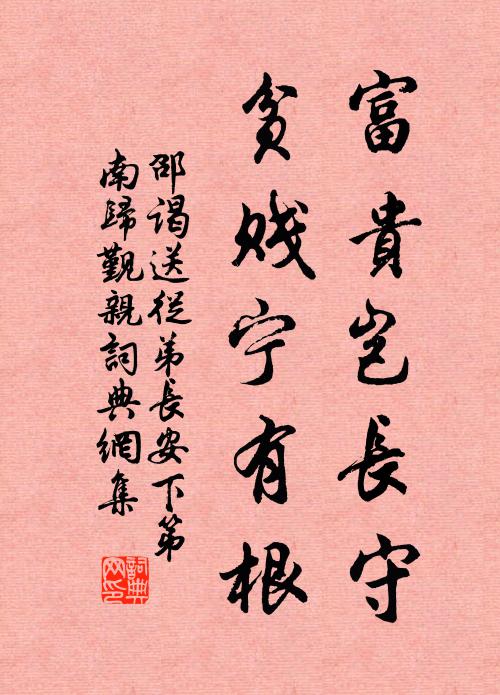 富貴豈長守
貧賤宁有根
邵謁送從弟長安下第
南歸覲親詞典網集
詞典
网印